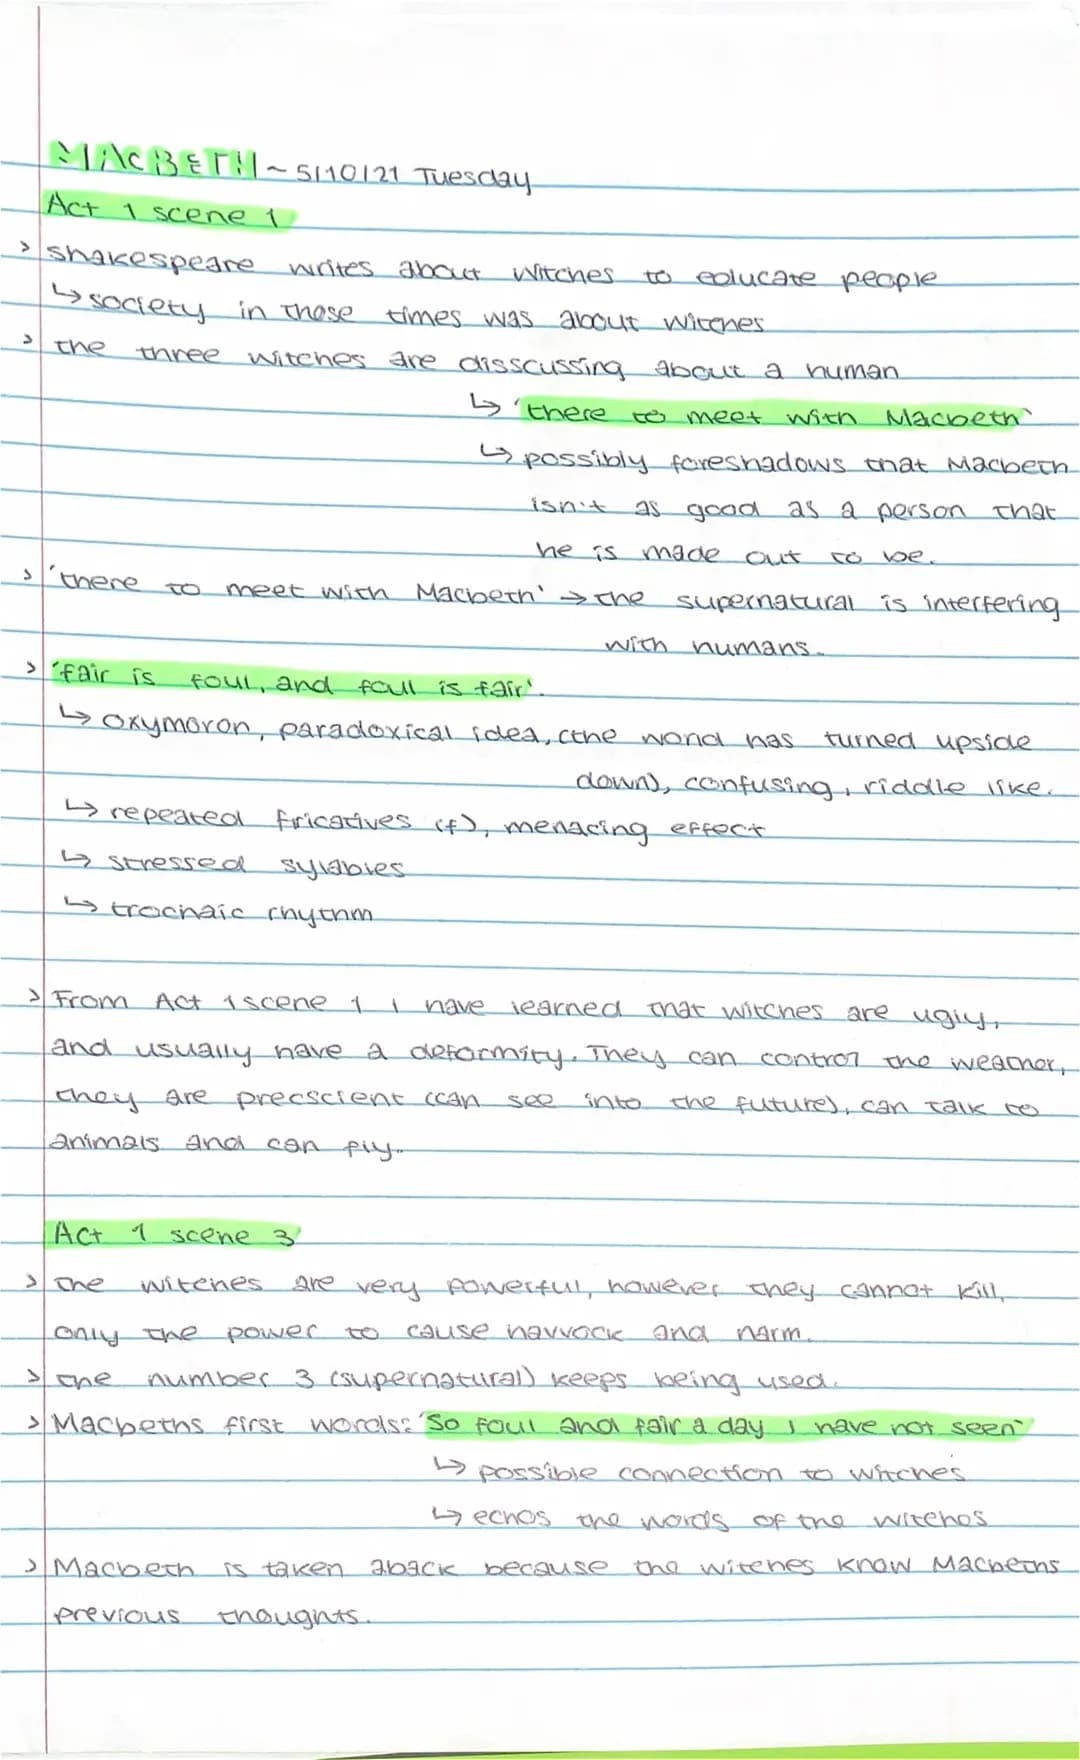 MACBETH ~ 5/10/21 Tuesday
Act 1 scene 1
> shakespeare writes about witches to educate people
↳ society in those times was about witches
> the three witches are disscussing about a human
↳ 'there to meet with Macbeth'
↳ possibly foreshadows that Macbeth
isn't as good as a person that
he is made out to be.
> 'there to meet with Macbeth' → the supernatural is interfering
with humans.
> 'fair is foul, and foul is fair'.
↳ oxymoron, paradoxical idea, (the world has turned upside
down), confusing, riddle like.
↳ repeated fricatives (f), menacing effect
↳ stressed sylables
↳ trochaic rhythm
> From Act 1 scene 1 I have learned that witches are ugly,
and usually have a deformity. They can control the weather,
they are precscient (can see into the future), can talk to
animals and can fly.
Act 1 scene 3
> The witches are very powerful, however they cannot kill,
only the power to cause havvock and harm.
> The number 3 (supernatural) keeps being used.
> Macbeths first words: 'So foul and fair a day I have not seen'
↳ possible connection to witches
↳ echos the words of the witches
> Macbeth is taken aback because the witches know Macbeths
previous thoughts.